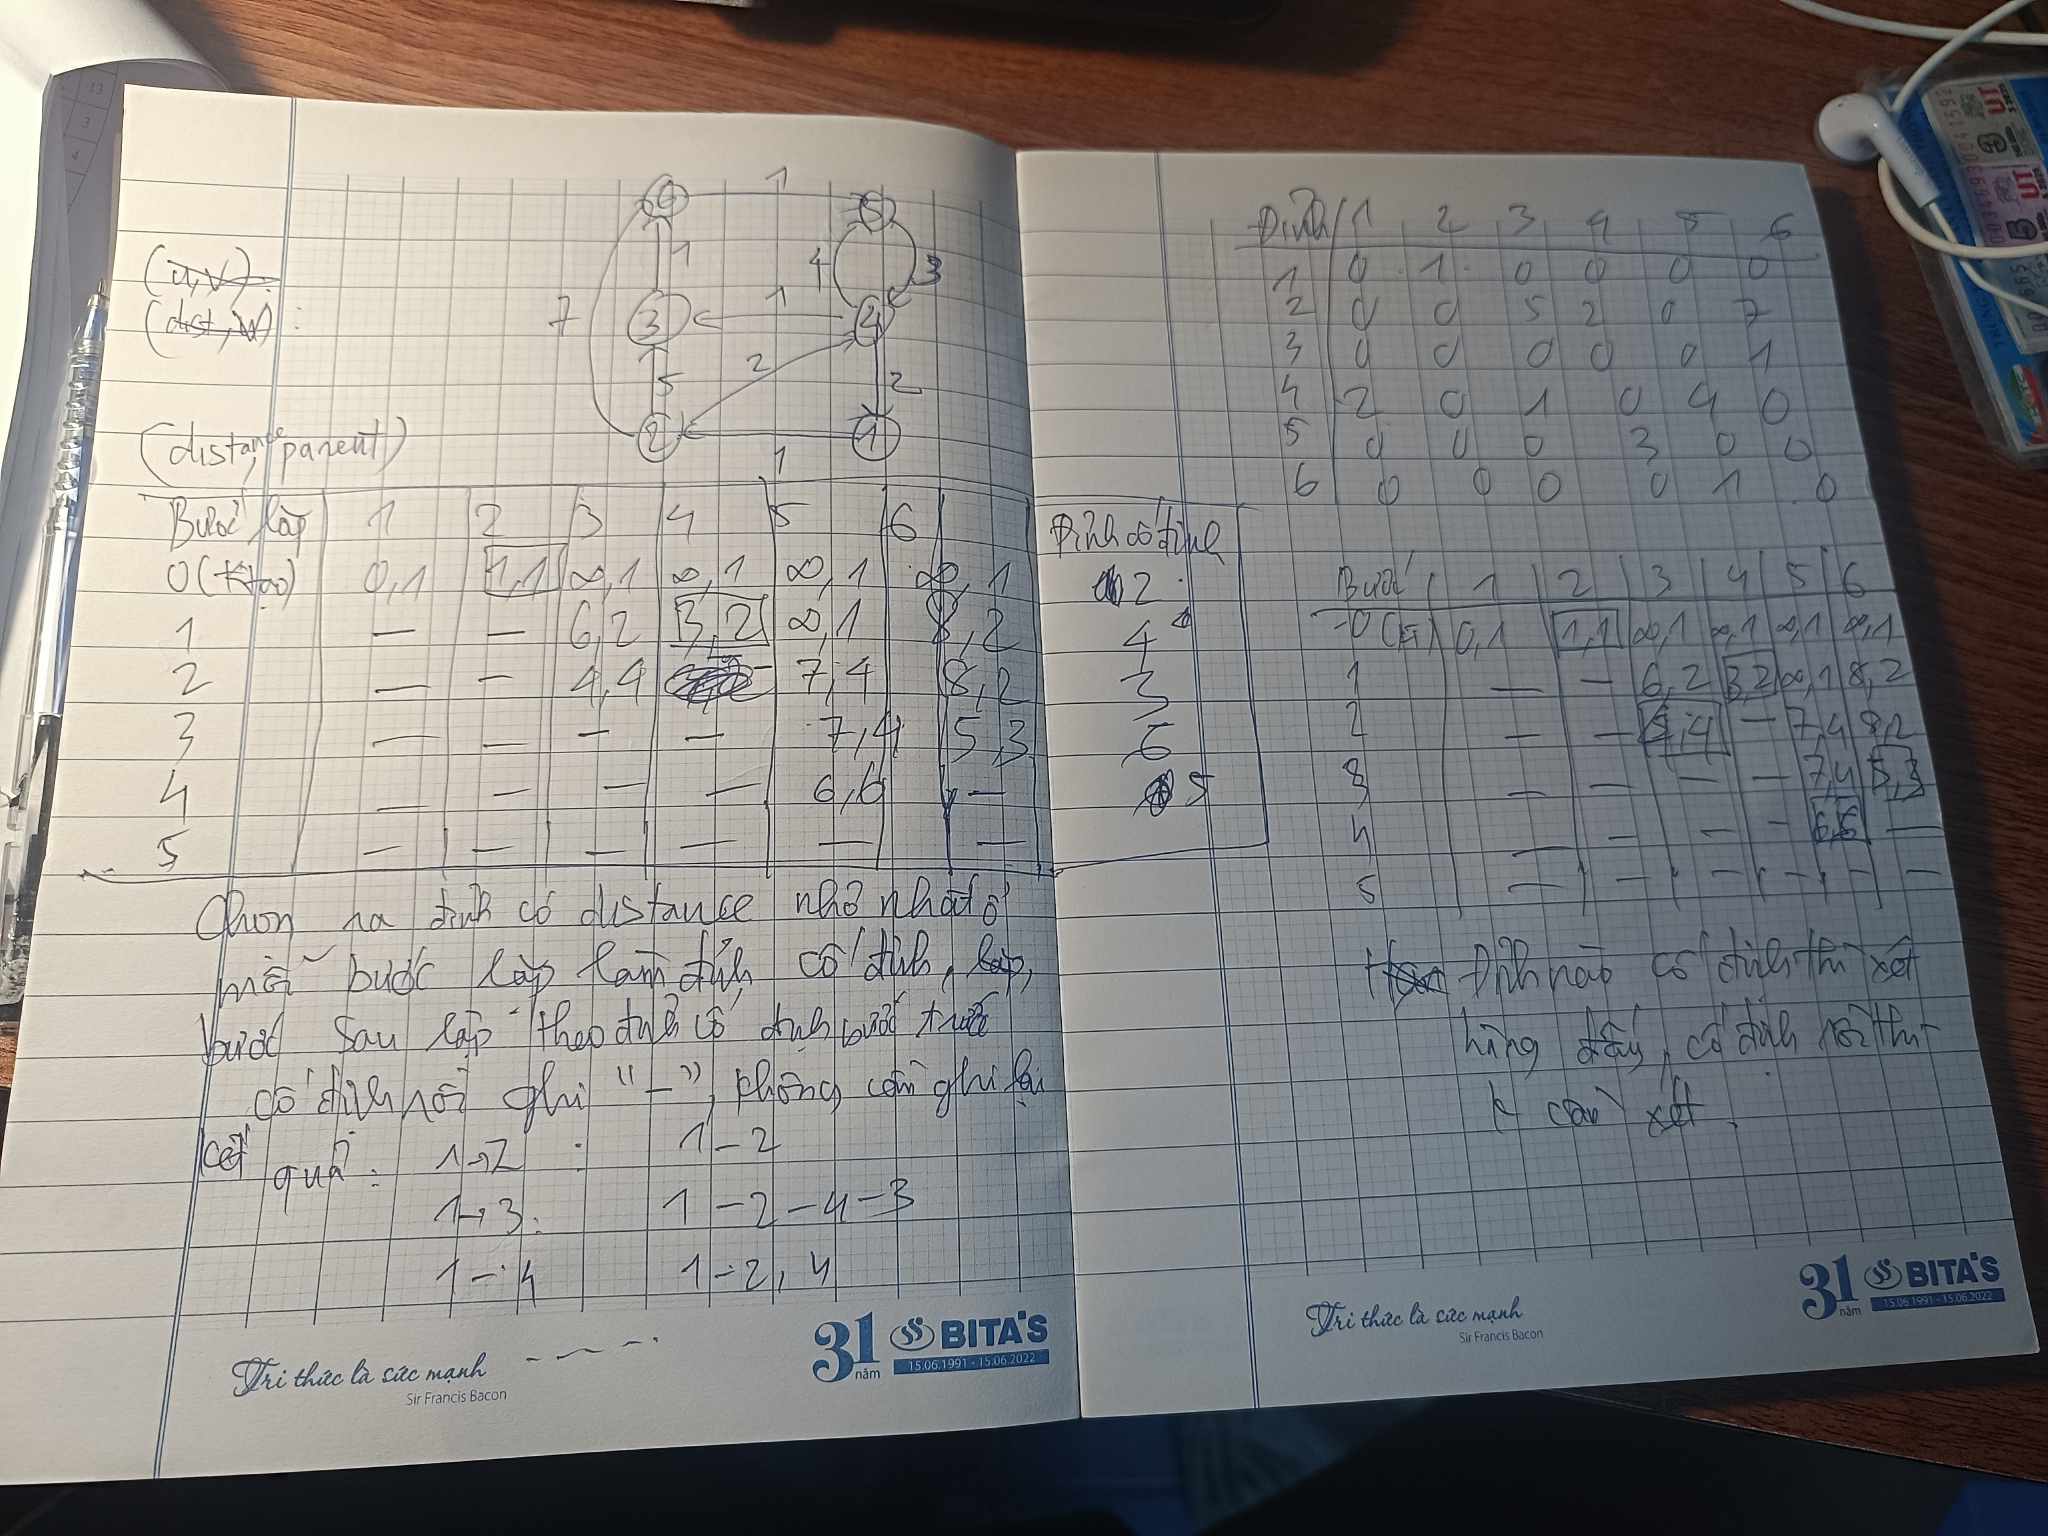 6 1 5
(u,v):
(dist,u):
1 4 3
7 3 1 4
2
5 2
(distance, parent)
2 1
1
Bước lặp 1 2 3 4 5 6 Đỉnh cố định
0(Ktạo) 0,1 1,1 ∞,1 ∞,1 ∞,1 ∞,1 2
1 — — 6,2 3,2 ∞,1 8,2 4
2 — — 4,4 — 7,4 8,2 3
3 — — — — 7,4 5,3 6
4 — — — — 6,6 — 5
5 — — — — — —
Chọn ra đỉnh có distance nhỏ nhất ở
mỗi bước lặp làm đỉnh cố định, lặp,
bước sau lặp theo đỉnh cố định bước trước
cố định rồi ghi "—", không cần ghi lại
kết quả: 1→2 : 1–2
1→3: 1–2–4–3
1–4 1–2,4
Tri thức là sức mạnh
Sir Francis Bacon
31 năm BITA'S
15.06.1991 - 15.06.2022
Đỉnh 1 2 3 4 5 6
1 0 1 0 0 0 0
2 0 0 5 2 0 7
3 0 0 0 0 0 1
4 2 0 1 0 4 0
5 0 0 0 3 0 0
6 0 0 0 0 1 0
Bước 1 2 3 4 5 6
0(K) 0,1 1,1 ∞,1 ∞,1 ∞,1 ∞,1
1 — — 6,2 3,2 ∞,1 8,2
2 — — 4,4 — 7,4 8,2
3 — — — — 7,4 5,3
4 — — — — 6,6 —
5 — — — — — —
Đỉnh nào cố định thì xét
hàng đấy, cố định rồi thì
k cần xét.
Tri thức là sức mạnh
Sir Francis Bacon
31 năm BITA'S
15.06.1991 - 15.06.2022